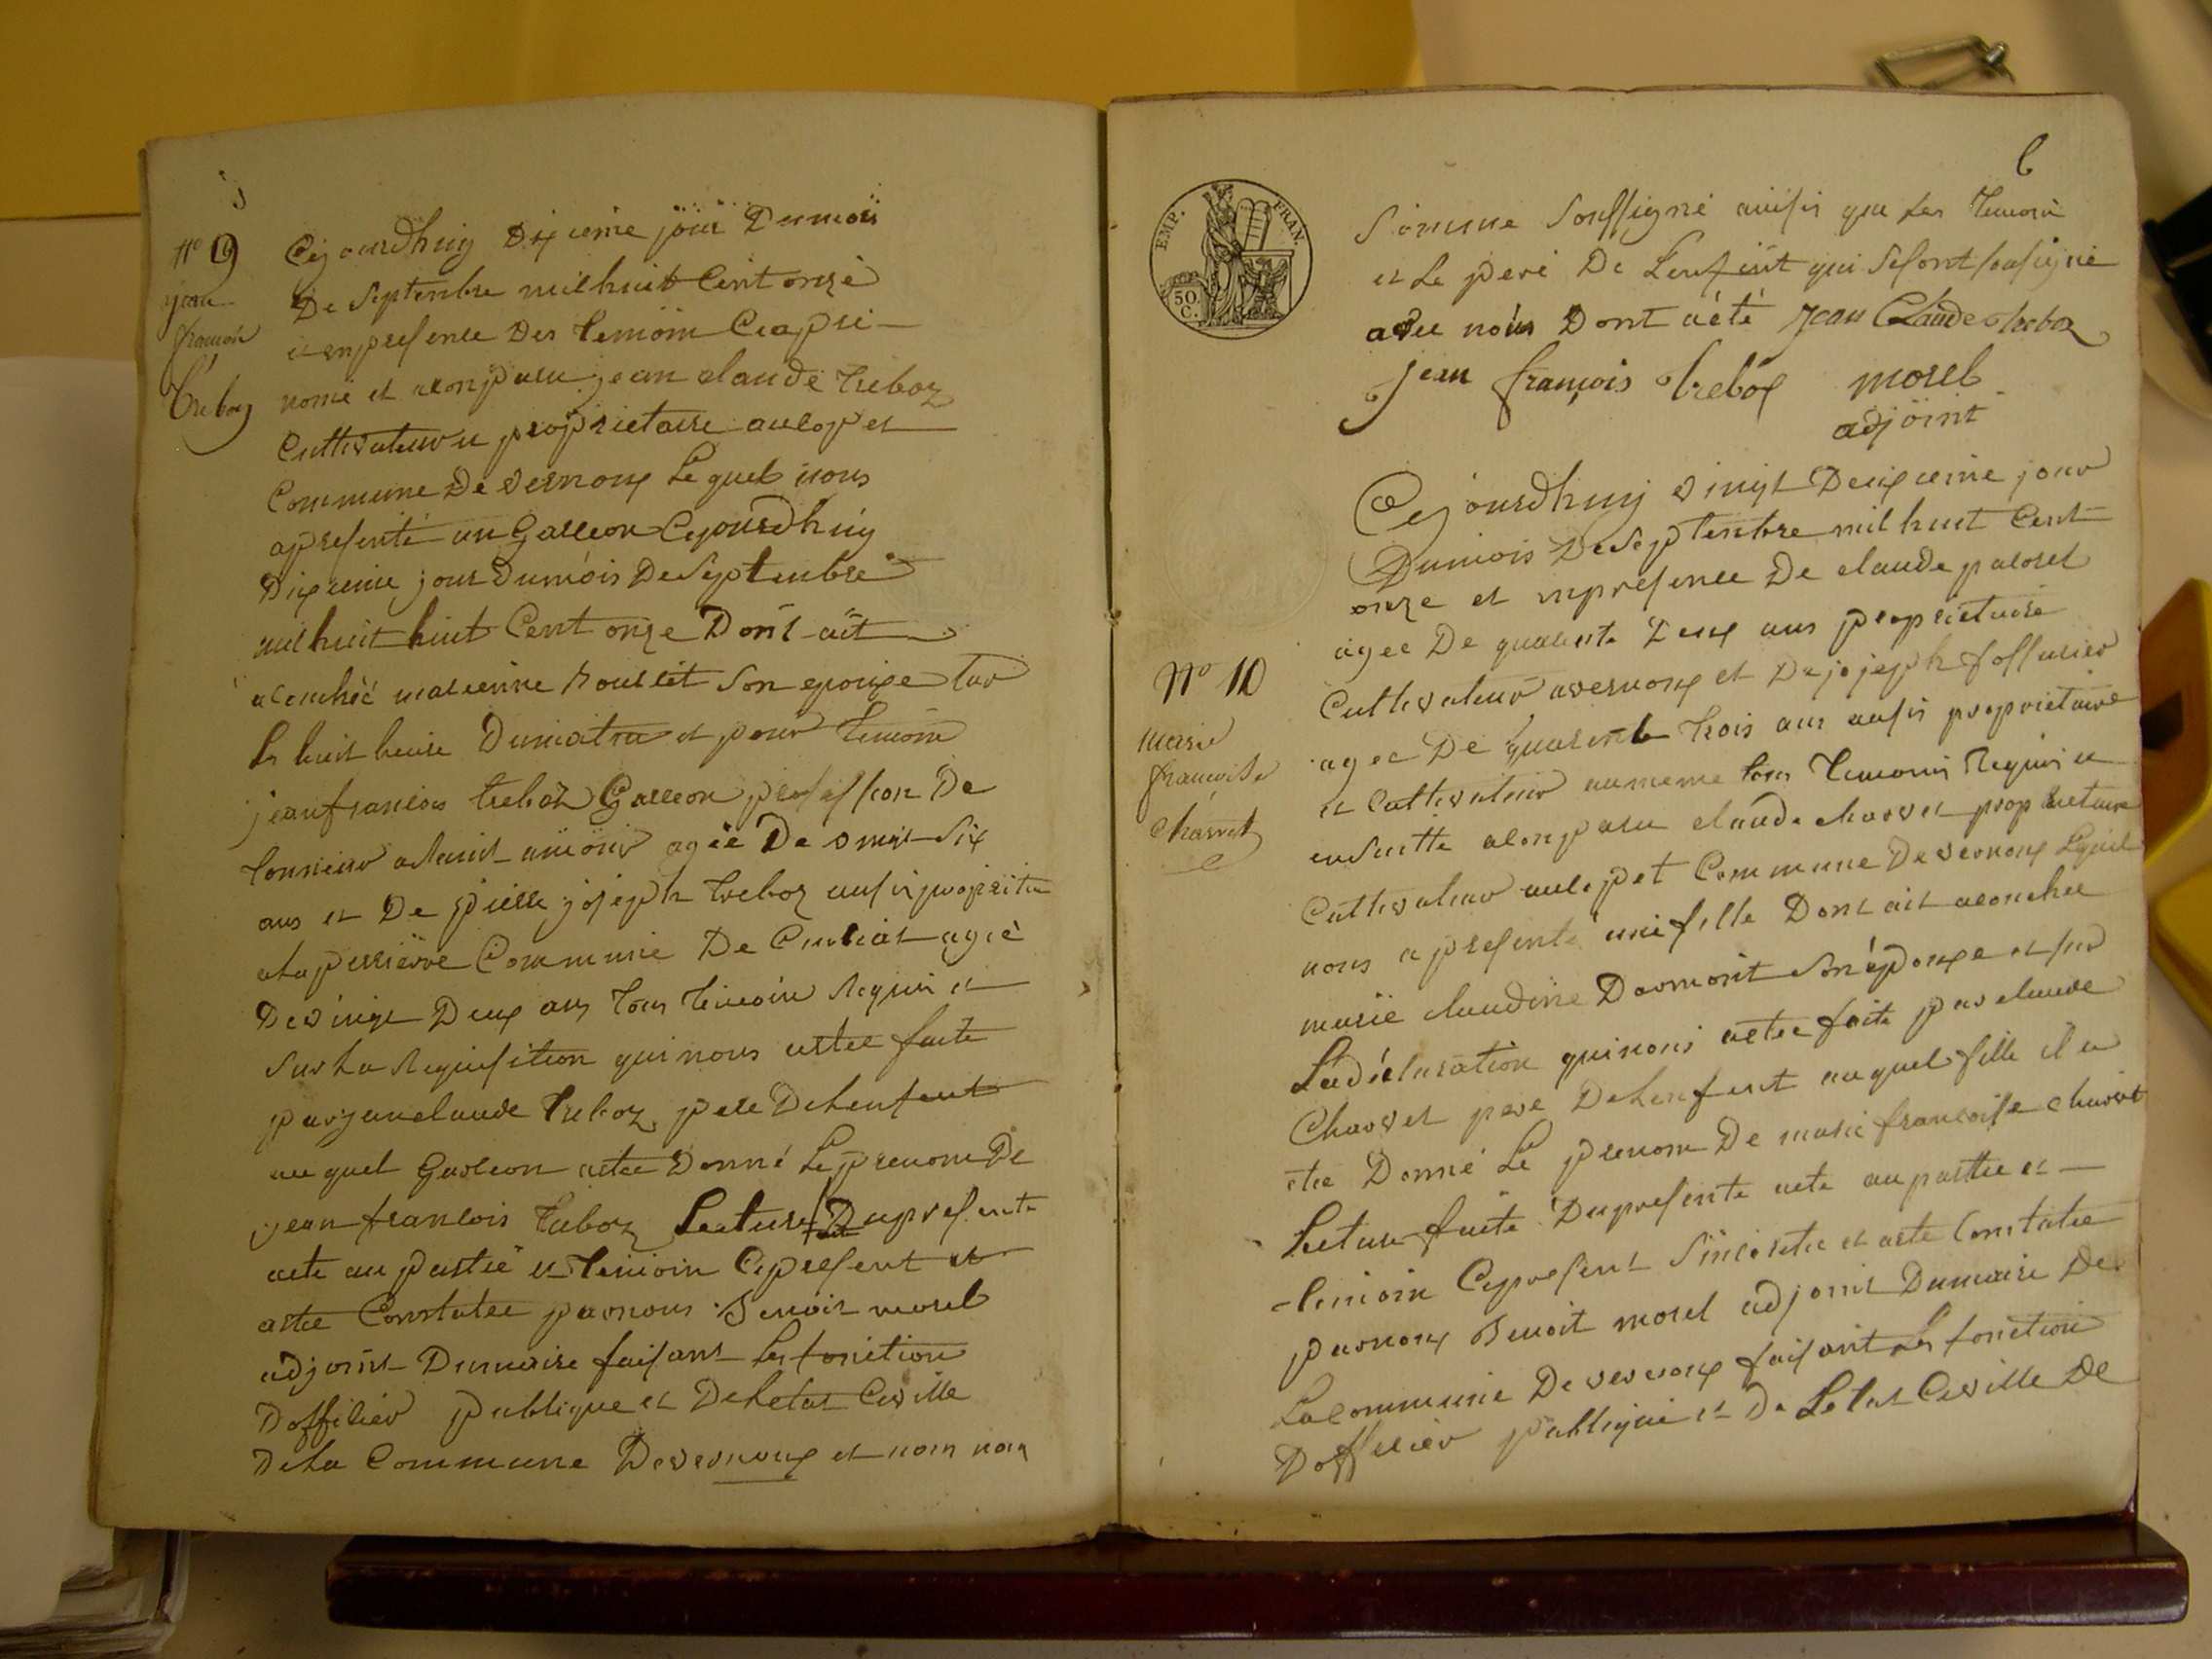 No 9
jean
francois
treboz
Cejourdhuy Dixieme jour Dumois
De Septembre mil huit Cent onze
et enpresence Des temoin Ciapre
nomé et alonparu jean claude treboz
Cultivateur et proprietaire aulopet
Commune De vernoux Lequel nous
apresenté un Garseon Cejourdhuy
Dixieme jour Dumois De Septembre
mil huit huit Cent onze Dont ait
acouchée marienne Son epouxe sur
Les huit heure Dumatin et pour temoin
jeanfrancois treboz Garseon profession De
tonnieur agée De vingt Six
ans et De pierre joseph treboz aussi propriétere
Commune De Curciat agée
De vingt Deux ans tous temoin Requis et
Sur La Requisition qui nous aetee faite
par jeanclaude treboz pere De Lenfent
au quel Garseon aetee Donné Le prenom De
jean francois treboz Lecture Du presente
acte au partie et temoin Cy present et
aetee Constatee par nous Benoit morel
adjoint Dumaire faisant Les fonction
Doffilier publique et De Letat Civille
De La Commune De vernoux et nom nom
6
EMP. FRAN.
50 C.
Somme Souffigné ausis que Les temoin
et Le peré De Lenfent qui Sesont sousigné
avec nous Dont acté Jean Claude treboz
jean françois trebox morel
adjoint
No 10
marie
francoise
Charvet
Cejourdhuy vingt Deuxieme jour
Dumois De Septembre mil huit Cent
onze et enpresence De claude pacoret
agee De quarente Deux ans proprietaire
Cultivateur avernoux et De josejph
agee De quarente trois ans ausis proprietaire
et Cultivateur aumeme lieu temoin Requis et
ensuitte alonparu claude charvet proprietaire
Cultivateur aulopet Commune De vernoux Lequel
nous apresenté une fille Dont ait acouchee
marie claudine Dormont Son épouxe et sur
La déclaration quinous aetee faite par claude
Charvet pere De Lenfent auquel fille il a
etee Donné Le prenom De marie francoisse charvet
Lecture faite Dupresente acte au partie et
temoin Cypresent et aete Constatee
parnoux Benoit morel adjoint Dumaire De
La Commune De vernoux faisant Les fonction
Doffisier publique et De Letat Civille De